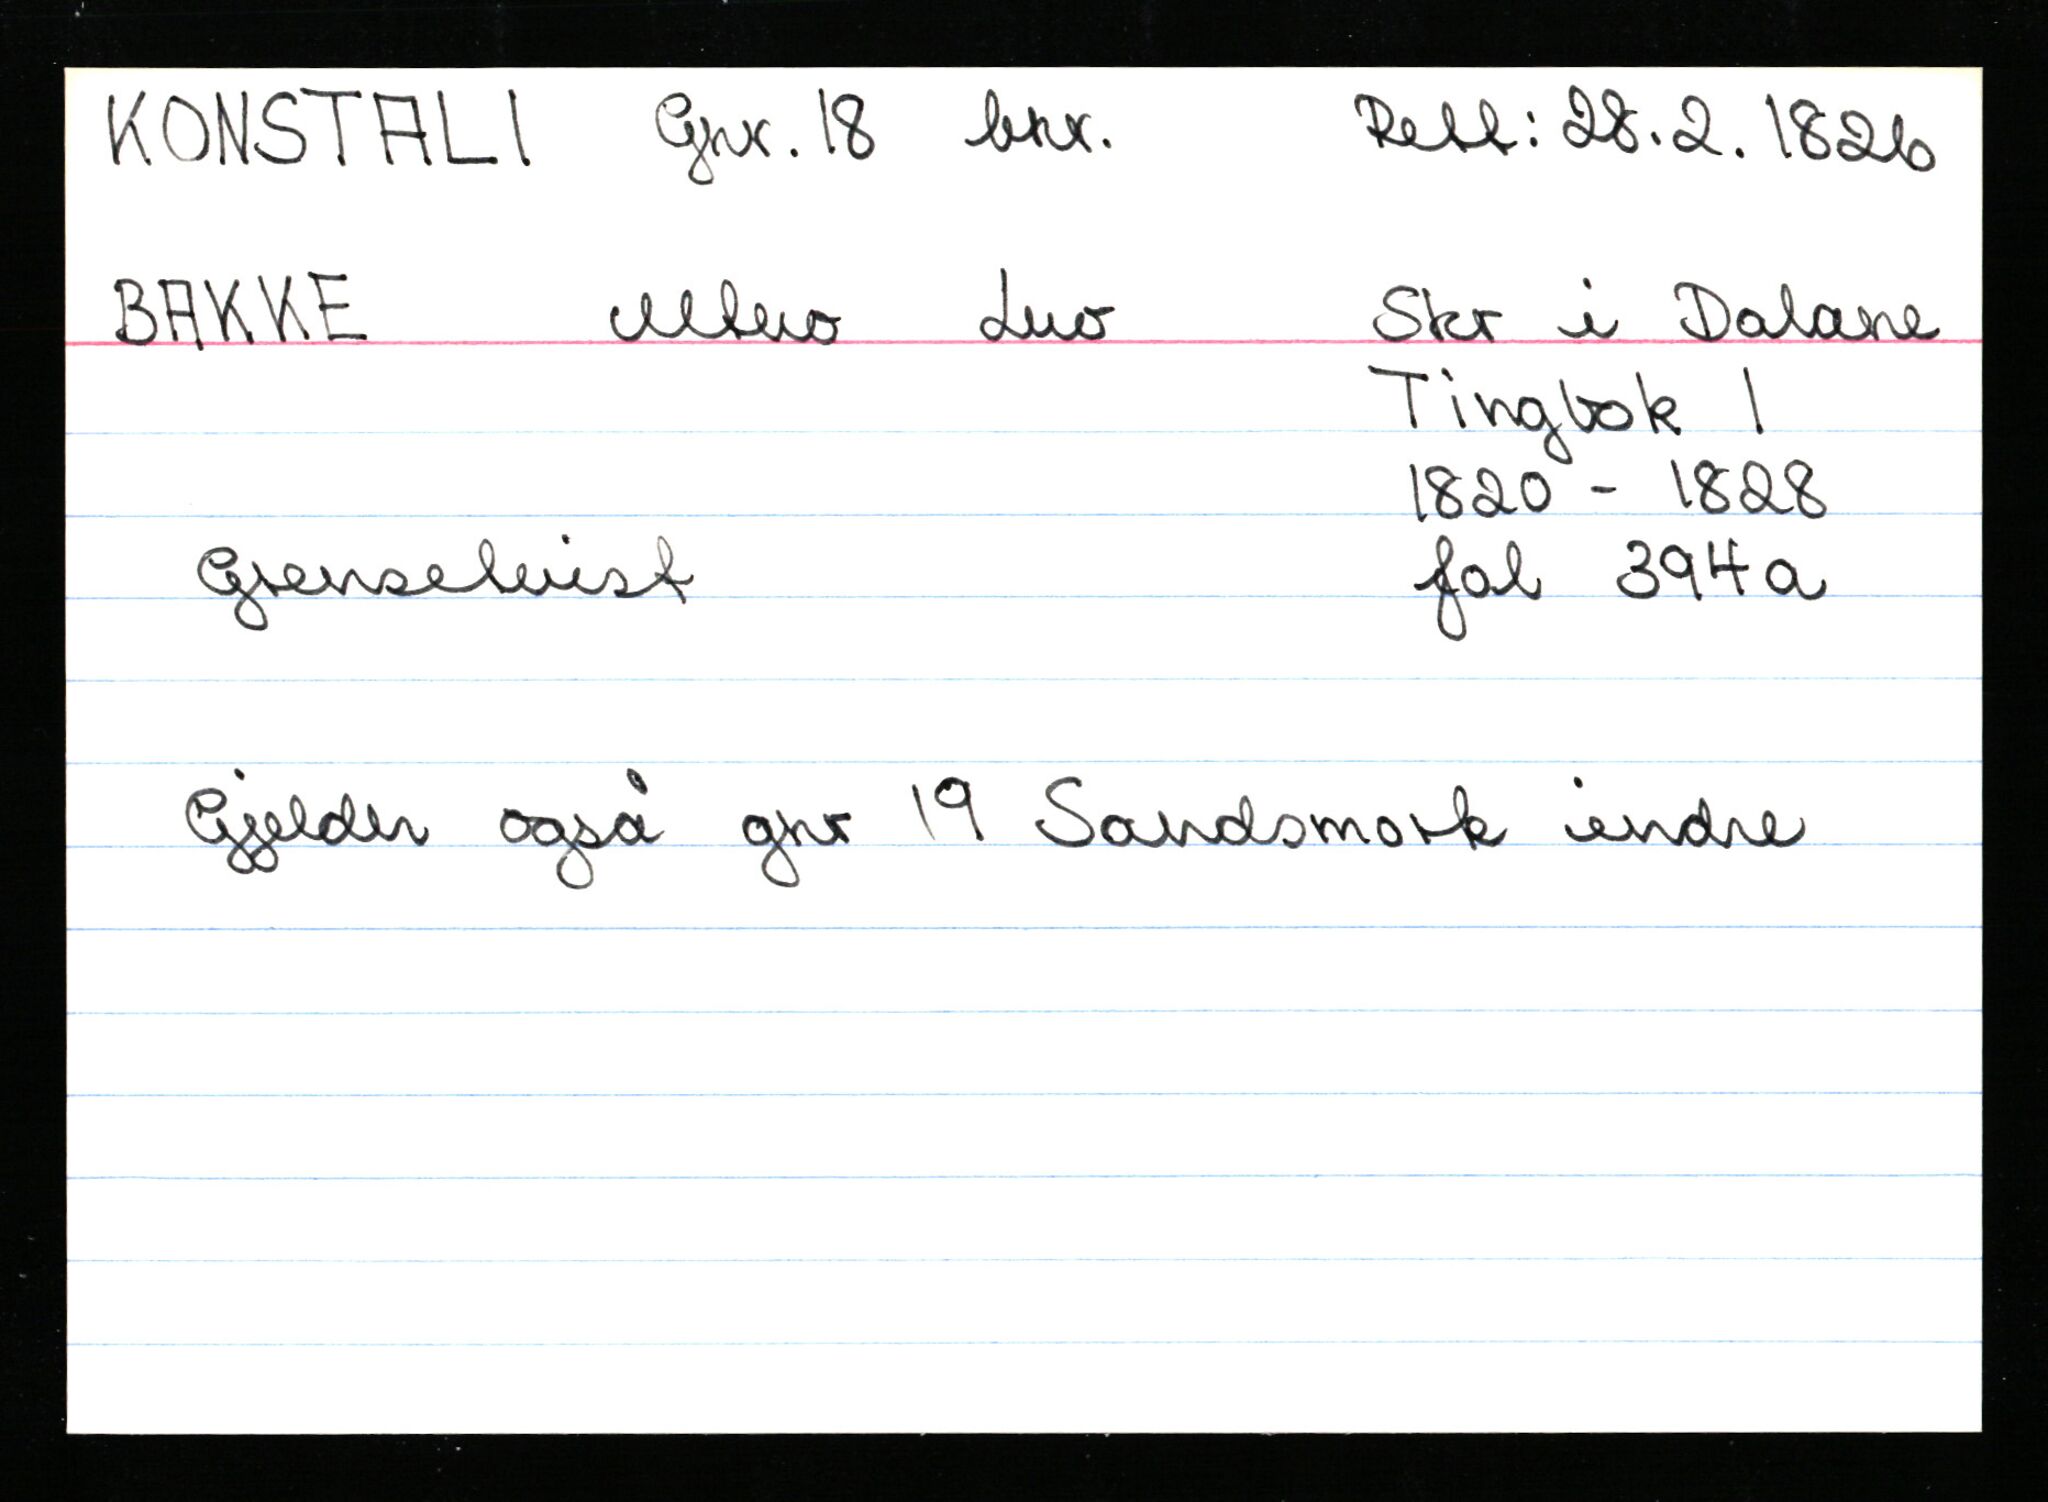 KONSTALI Gnr. 18 bnr. Rett: 28.2.1826
BAKKE Mtno Lno Skr i Dalane
Tingbok 1
1820 - 1828
Grensetvist fol 394a
Gjelder også gnr 19 Sandsmark indre